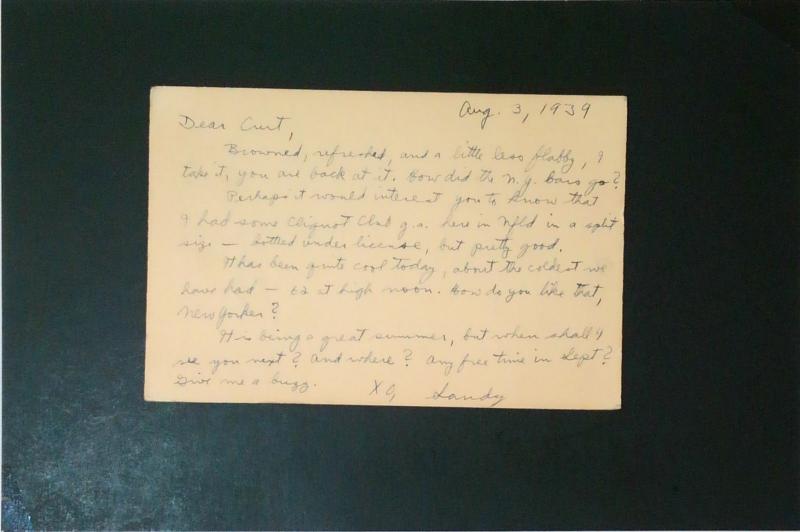 Aug. 3, 1939
Dear Curt,
Browned, refreshed, and a little less flabby, I
take it, you are back at it. How did the N.Y. bars go?
Perhaps it would interest you to know that
I had some Cliquot Club g.a. here in Nfld in a split
size — bottled under license, but pretty good.
It has been quite cool today, about the coldest we
have had — 62 at high noon. How do you like that,
New Yorker?
It is being a great summer, but when shall I
see you next? And where? Any free time in Sept?
Give me a buzz.
Sandy